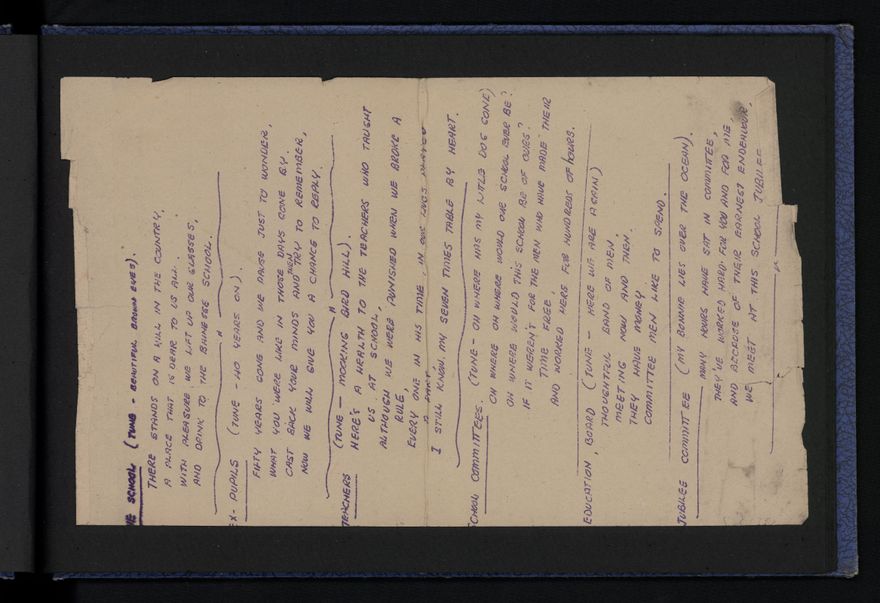 HE SCHOOL (TUNE - BEAUTIFUL BROWN EYES).
THERE STANDS ON A HILL IN THE COUNTRY,
A PLACE THAT IS DEAR TO US ALL.
WITH PLEASURE WE LIFT UP OUR GLASSES,
AND DRINK TO THE SCHOOL.
EX-PUPILS (TUNE - 40 YEARS ON).
FIFTY YEARS GONE AND WE PAUSE JUST TO WONDER,
WHAT YOU WERE LIKE IN THOSE DAYS GONE BY.
CAST BACK YOUR MINDS AND THEN TRY TO REMEMBER,
NOW WE WILL GIVE YOU A CHANCE TO REPLY.
TEACHERS (TUNE - MOCKING BIRD HILL).
HERE'S A HEALTH TO THE TEACHERS WHO TAUGHT
US AT SCHOOL,
ALTHOUGH WE WERE PUNISHED WHEN WE BROKE A
RULE,
EVERY ONE IN HIS TIME, IN OUR LIVES PLAYED
A PART
I STILL KNOW MY SEVEN TIMES TABLE BY HEART.
SCHOOL COMMITTEES. (TUNE - OH WHERE HAS MY LITTLE DOG GONE)
OH WHERE OH WHERE WOULD OUR SCHOOL EVER BE?
OH WHERE WOULD THIS SCHOOL BE OF OURS?
IF IT WEREN'T FOR THE MEN WHO HAVE MADE THEIR
TIME FREE,
AND WORKED HERE FOR HUNDREDS OF HOURS.
EDUCATION, BOARD (TUNE - HERE WE ARE AGAIN)
THOUGHTFUL BAND OF MEN.
MEETING NOW AND THEN.
THEY HAVE MONEY
COMMITTEE MEN LIKE TO SPEND.
JUBILEE COMMITTEE (MY BONNIE LIES OVER THE OCEAN).
MANY HOURS HAVE SAT IN COMMITTEE,
THEY'VE WORKED HARD FOR YOU AND FOR ME,
AND BECAUSE OF THEIR EARNEST ENDEAVOUR,
WE MEET AT THIS SCHOOL JUBILEE